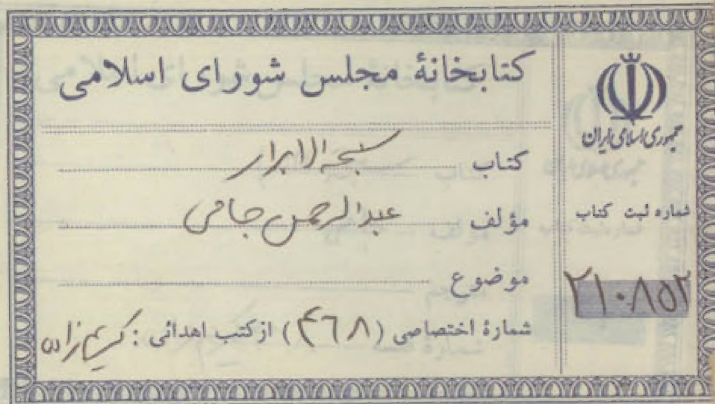 کتابخانهٔ مجلس شورای اسلامی
کتاب سبحة الابرار
مؤلف عبدالرحمن جامی
موضوع
شمارهٔ اختصاصی (۴۶۸) از کتب اهدائی : کریم‌زاده
جمهوری اسلامی ایران
شماره ثبت کتاب
۲۱۰۸۵۲